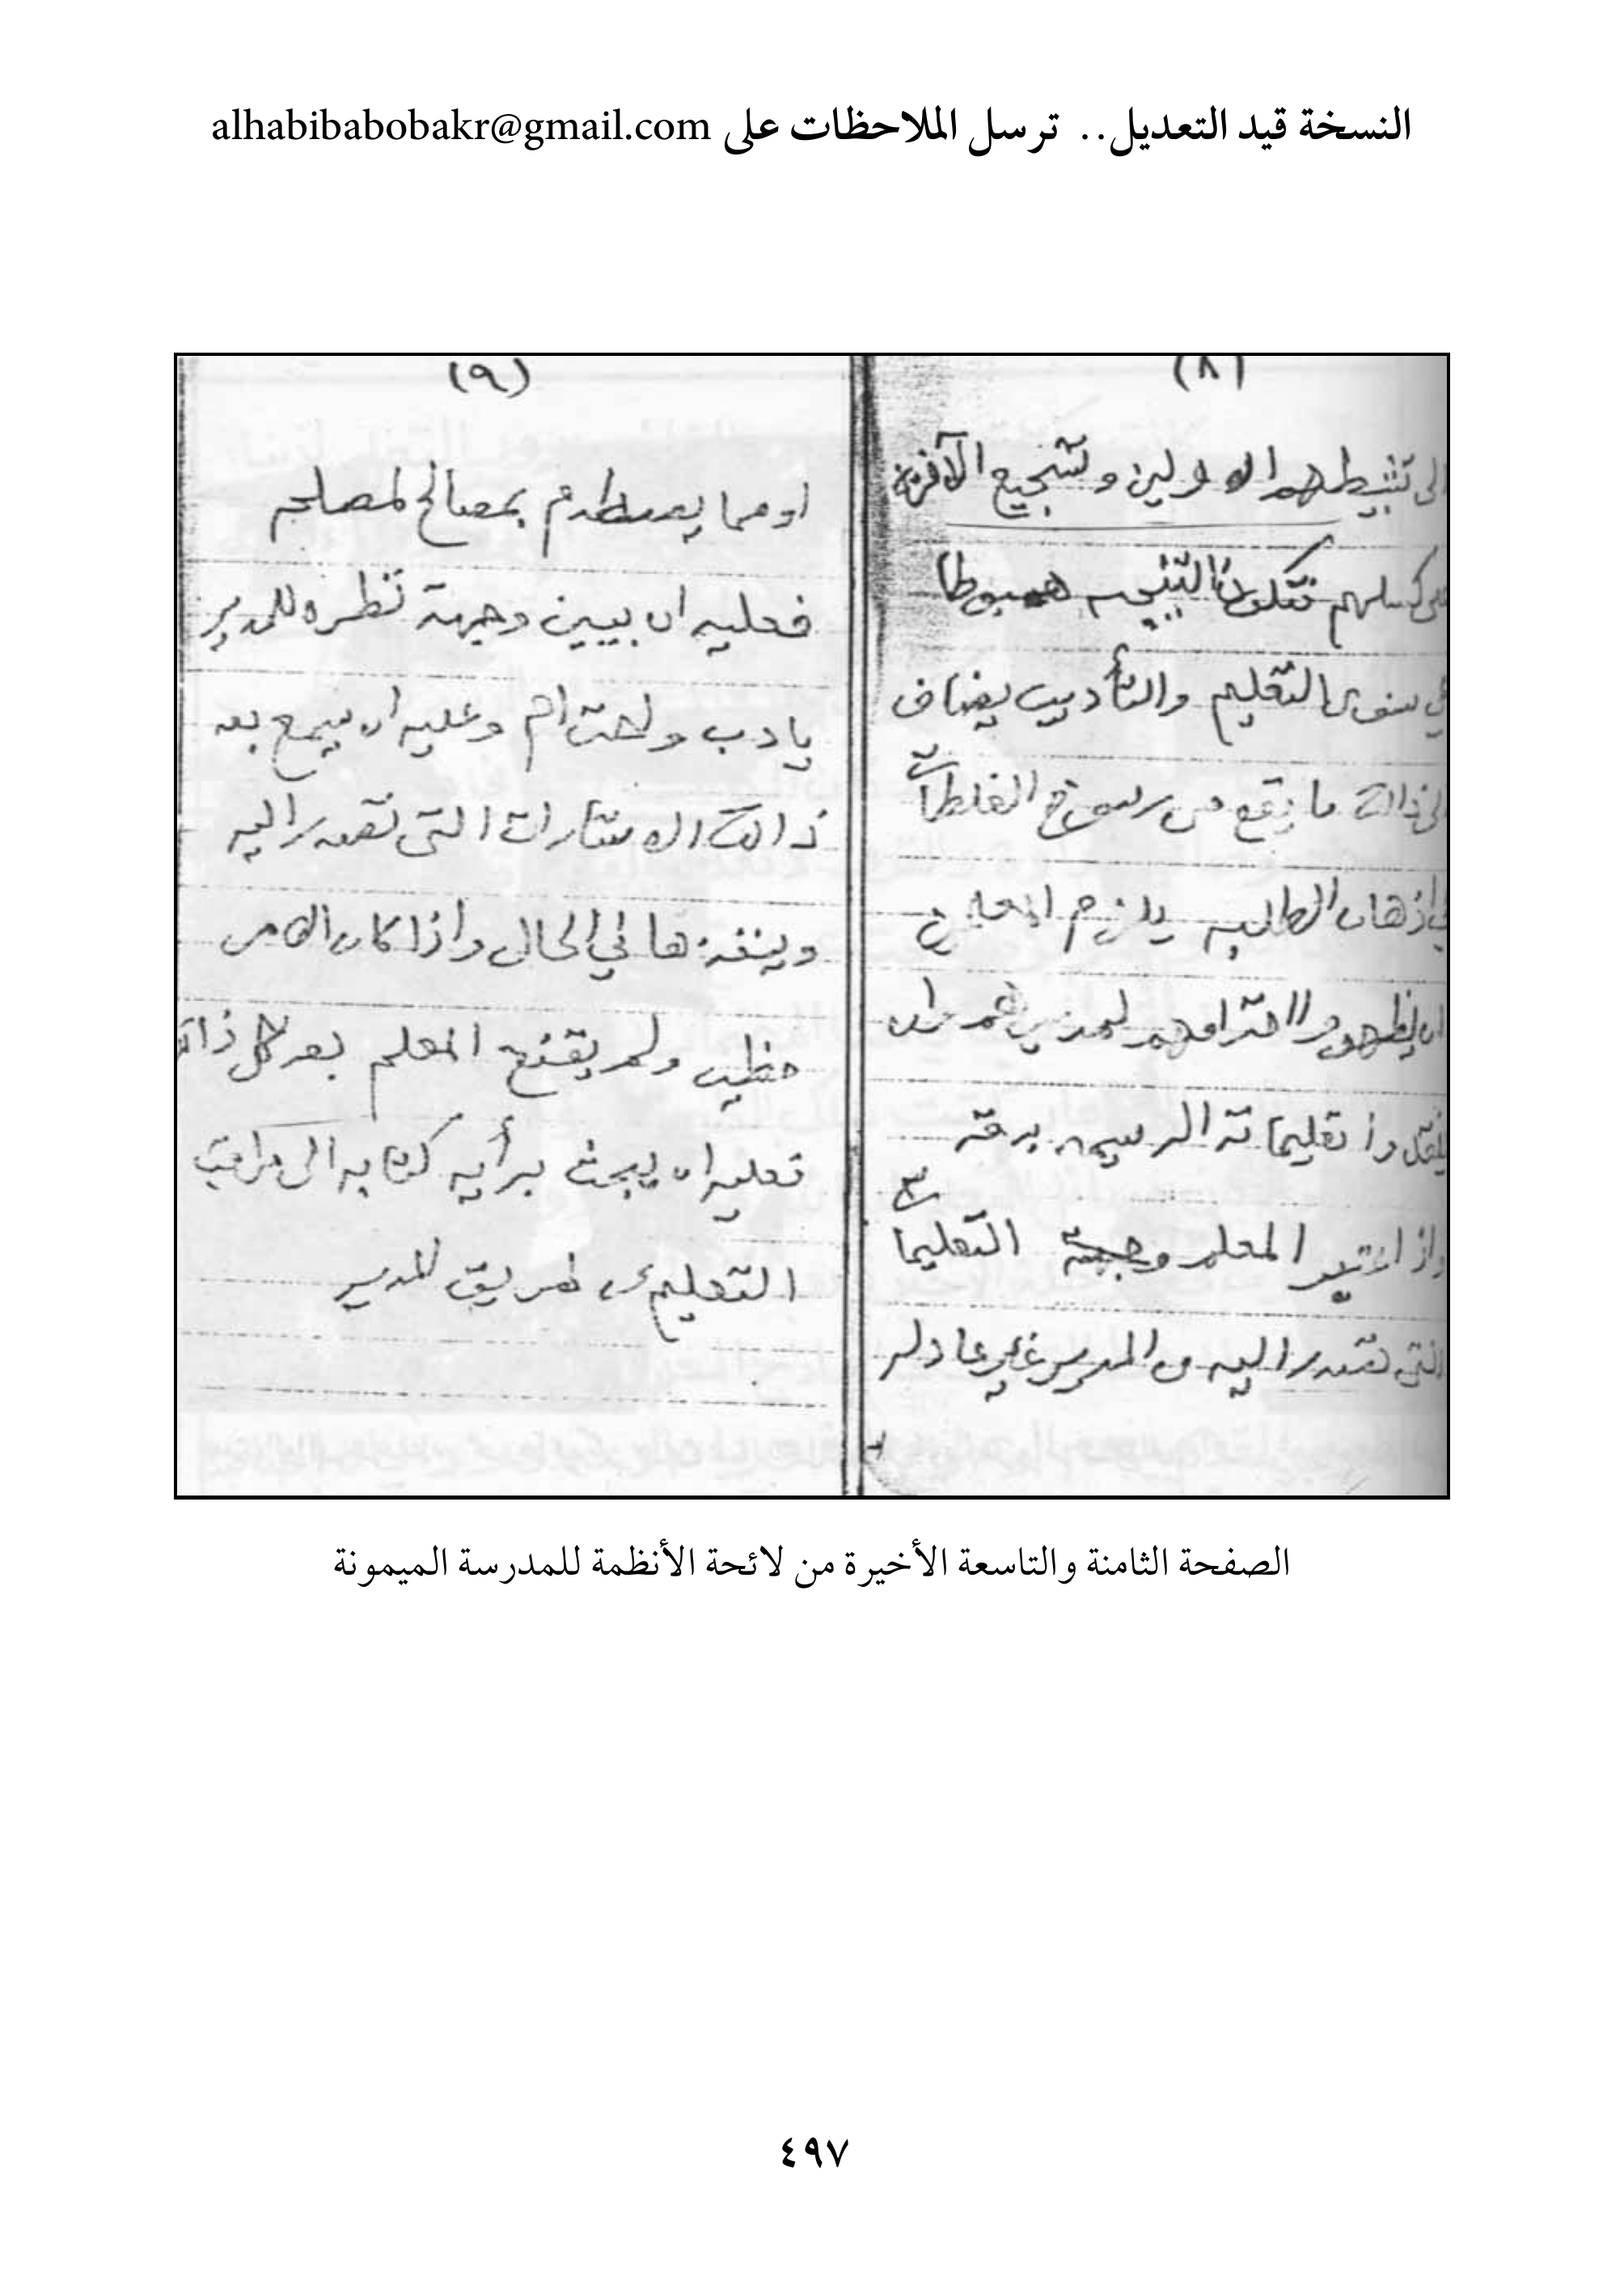 النسخة قيد التعديل.. ترسل الملاحظات على alhabibabobakr@gmail.com
(٨)
الى تثبيطهم الاولين وتشجيع الآخرين
على كسلهم فتكون النتيجه هبوطا
في مستوى التعليم والتأديب يضاف
الى ذالك ما يقع من رسوخ الغلطات
في اذهان الطلبه يلزم المعلمين
ان يظهروا احترامهم لمديرهم وان
تعليماته الرسيمه بدقه
واذا اعتبر المعلم التعليمات
التى تصدر اليه من المدير غير عادله
(٩)
او مما يصطدم بمصالح لمصلحه
فعليه ان يبين وجهة نظره للمدير
بادب واحترام وعليه ان مع
ذالك الاشارات التى تصدر اليه
وينفذها في الحال واذا كان الامر
ولم يقتنع المعلم بعد كل ذالك
فعليه ان يبعث برأيه كتابه الى مراقبة
التعليم عن طريق المدير
الصفحة الثامنة والتاسعة الأخيرة من لائحة الأنظمة للمدرسة الميمونة
٤٩٧